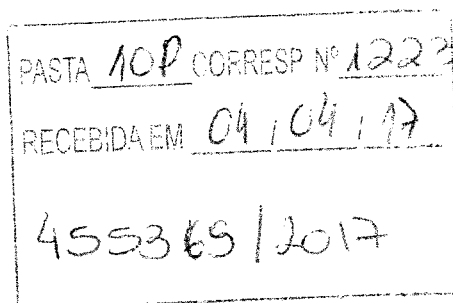 PASTA 10P CORRESP Nº 1223
RECEBIDA EM 04 / 04 / 17
455369 / 2017